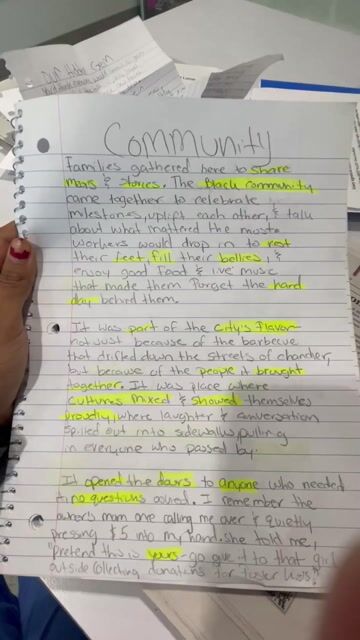 Our
Community
Families gathered here to share
meals & stories. The black community
came together to celebrate
milestones, uplift each other, & talk
about what mattered the most.
Workers would drop in to rest
their feet, fill their bellies, &
enjoy good food & live music
that made them forget the hard
day behind them.
It was part of the city's flavor
not just because of the barbecue
that drifted down the streets of
but because of the people it brought
together. It was place where
cultures mixed & showed themselves
proudly, where laughter & conversation
spilled out into sidewalks, pulling
in everyone who passed by.
It opened the doors to anyone who needed
it no questions asked. I remember the
owner's mom one calling me over & quietly
pressing $5 into my hand. she told me,
"pretend this is yours - go give it to that girl
outside collecting donations for